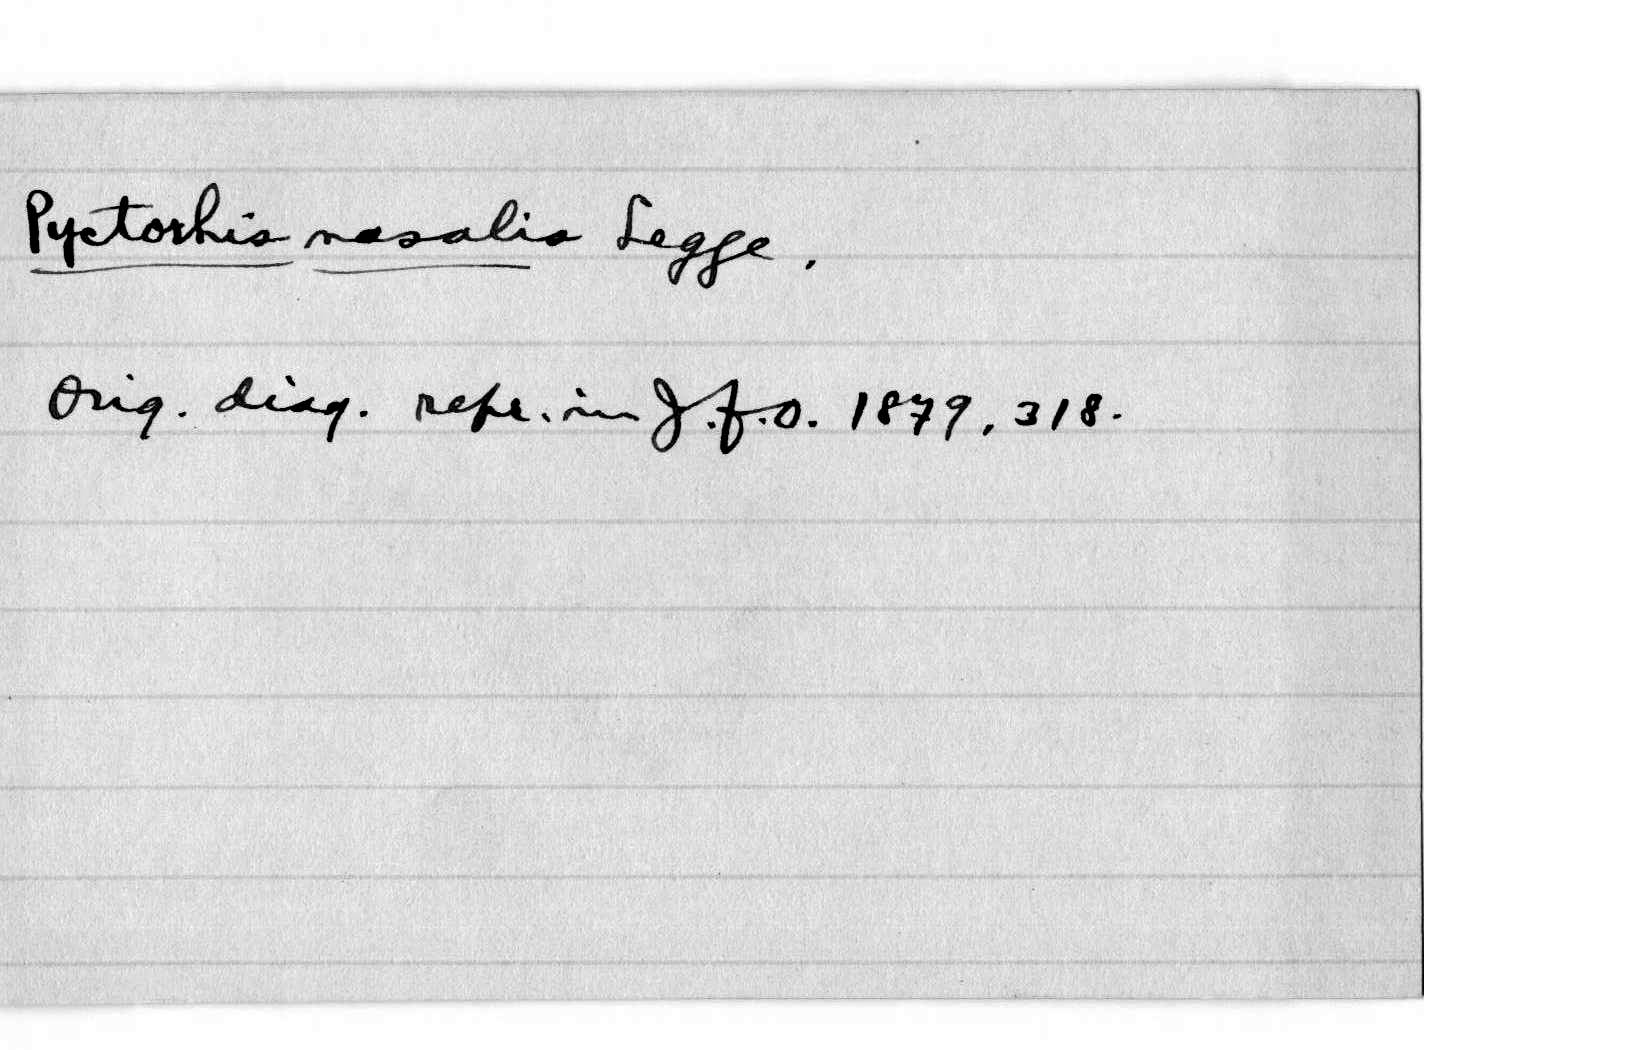 Pyctorhis nasalis Legge.
Orig. diag. repr. in J.f.O. 1879, 318.